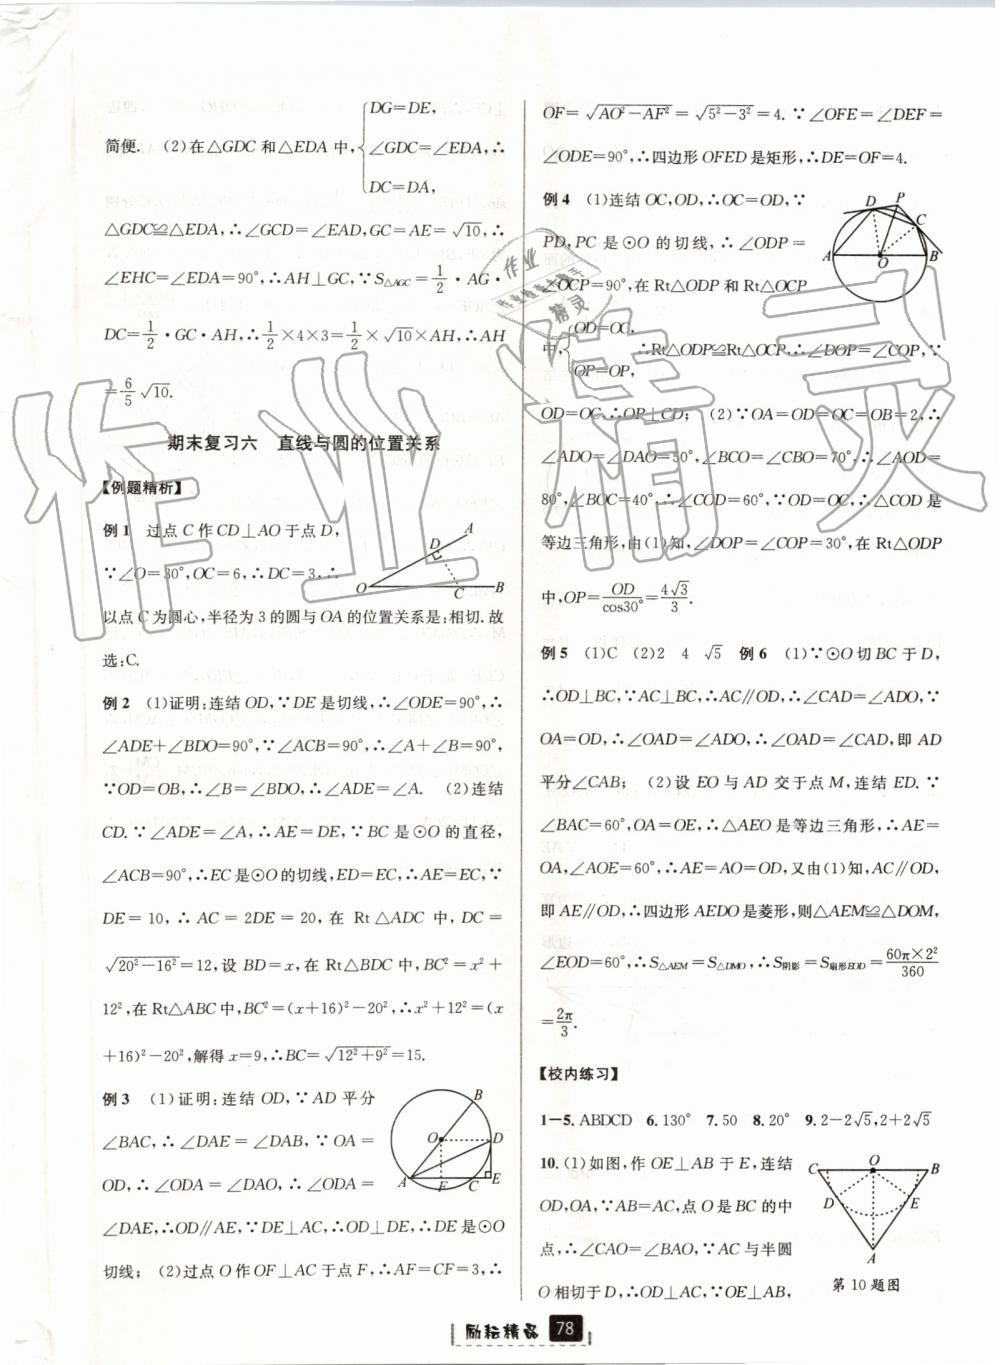 DG=DE,
简便. (2)在△GDC 和△EDA 中, ∠GDC=∠EDA,∴
DC=DA,
△GDC≌△EDA,∴∠GCD=∠EAD,GC=AE=√10,∴
∠EHC=∠EDA=90°,∴AH⊥GC,∵S△AGC=1/2·AG·
DC=1/2·GC·AH,∴1/2×4×3=1/2×√10×AH,∴AH
=6/5√10.
期末复习六 直线与圆的位置关系
【例题精析】
例 1 过点 C 作 CD⊥AO 于点 D,
∵∠O=30°,OC=6,∴DC=3,∴
以点 C 为圆心,半径为 3 的圆与 OA 的位置关系是:相切.故
选:C.
A
D
O
C
B
例 2 (1)证明:连结 OD,∵DE 是切线,∴∠ODE=90°,∴
∠ADE+∠BDO=90°,∵∠ACB=90°,∴∠A+∠B=90°,
∵OD=OB,∴∠B=∠BDO,∴∠ADE=∠A. (2)连结
CD.∵∠ADE=∠A,∴AE=DE,∵BC 是⊙O 的直径,
∠ACB=90°,∴EC 是⊙O 的切线,ED=EC,∴AE=EC,∵
DE=10,∴AC=2DE=20,在 Rt△ADC 中,DC=
√20²-16²=12,设 BD=x,在 Rt△BDC 中,BC²=x²+
12²,在 Rt△ABC 中,BC²=(x+16)²-20²,∴x²+12²=(x
+16)²-20²,解得 x=9,∴BC=√12²+9²=15.
例 3 (1)证明:连结 OD,∵AD 平分
∠BAC,∴∠DAE=∠DAB,∵OA=
OD,∴∠ODA=∠DAO,∴∠ODA=
∠DAE,∴OD∥AE,∵DE⊥AC,∴OD⊥DE,∴DE 是⊙O
切线; (2)过点 O 作 OF⊥AC 于点 F,∴AF=CF=3,∴
B
O
D
A
F
C
E
OF=√AO²-AF²=√5²-3²=4.∵∠OFE=∠DEF=
∠ODE=90°,∴四边形 OFED 是矩形,∴DE=OF=4.
例 4 (1)连结 OC,OD,∴OC=OD,∵
PD,PC 是⊙O 的切线,∴∠ODP=
∠OCP=90°,在 Rt△ODP 和 Rt△OCP
D
P
C
A
O
B
OD=OC,
中, ∴Rt△ODP≌Rt△OCP,∴∠DOP=∠COP,∵
OP=OP,
OD=OC,∴OP⊥CD; (2)∵OA=OD=OC=OB=2,∴
∠ADO=∠DAO=50°,∠BCO=∠CBO=70°,∴∠AOD=
80°,∠BOC=40°,∴∠COD=60°,∵OD=OC,∴△COD 是
等边三角形,由(1)知,∠DOP=∠COP=30°,在 Rt△ODP
中,OP=OD/cos30°=4√3/3.
例 5 (1)C (2)2 4 √5 例 6 (1)∵⊙O 切 BC 于 D,
∴OD⊥BC,∵AC⊥BC,∴AC∥OD,∴∠CAD=∠ADO,∵
OA=OD,∴∠OAD=∠ADO,∴∠OAD=∠CAD,即 AD
平分∠CAB; (2)设 EO 与 AD 交于点 M,连结 ED.∵
∠BAC=60°,OA=OE,∴△AEO 是等边三角形,∴AE=
OA,∠AOE=60°,∴AE=AO=OD,又由(1)知,AC∥OD,
即 AE∥OD,∴四边形 AEDO 是菱形,则△AEM≌△DOM,
∠EOD=60°,∴S△AEM=S△DMO,∴S阴影=S扇形EOD=60π×2²/360
=2π/3.
【校内练习】
1-5. ABDCD 6. 130° 7. 50 8. 20° 9. 2-2√5,2+2√5
10. (1)如图,作 OE⊥AB 于 E,连结
OD,OA,∵AB=AC,点 O 是 BC 的中
点,∴∠CAO=∠BAO,∵AC 与半圆
O 相切于 D,∴OD⊥AC,∵OE⊥AB,
C
O
B
D
E
A
第 10 题图
励耘精品 78
作业精灵